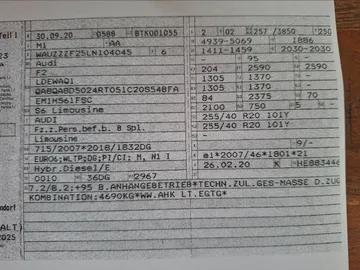 Teil I
30.09.20 0588 BTK001055
M1 AA
WAUZZZF25LN104045 6
Audi
F2
LDEWAQ1
S6 Limousine
AUDI
Fz.z.Pers.bef.b. 8 Spl.
Limousine
715/2007*2018/1832DG
EURO6;WLTP;DG;PI/CI; M, N1 I
Hybr.Diesel/E
0010 36DG 2967
2 02 257 /3850 250
4939-5069 1886
1411-1459 2030-2030
- 95 -
204 2590 2590
1305 1370 -
1305 1370 -
84 2375 70
2100 750 5 -
255/40 R20 101Y
255/40 R20 101Y
-
9/-
e1*2007/46*1801*21
26.02.20 K HE883446
7.2/8.2:+95 B.ANHÄNGEBETRIEB*TECHN.ZUL.GES-MASSE D.ZUG
KOMBINATION:4690KG*WW.AHK LT.EGTG*
ndorf
ALT)
2025